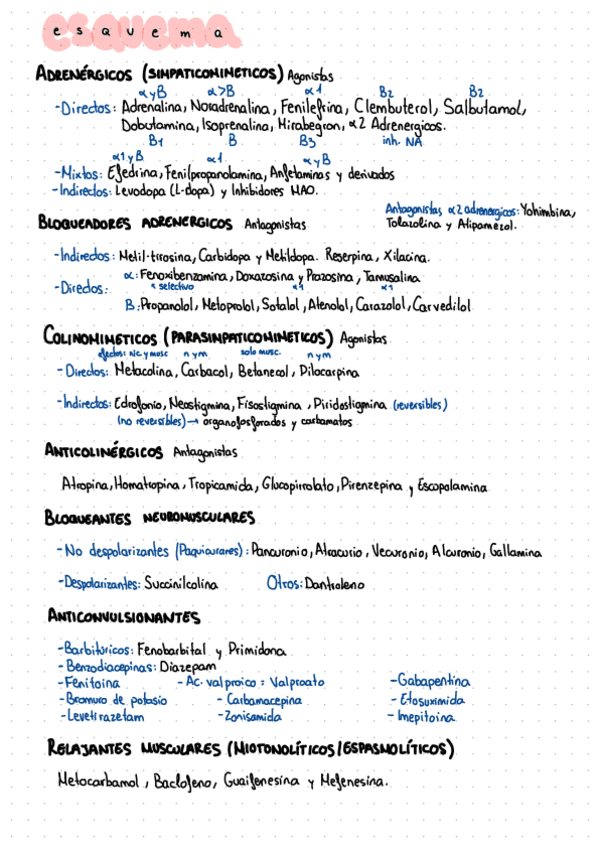 esquema
ADRENÉRGICOS (SIMPATICOMIMETICOS) Agonistas
α y B α>B α1 B2 B2
-Directos: Adrenalina, Noradrenalina, Fenilefrina, Clembuterol, Salbutamol,
Dobutamina, Isoprenalina, Mirabegron, α2 Adrenergicos.
B1 B B3 inh. NA
α1 y B α1 α y B
-Mixtos: Efedrina, Fenilpropanolamina, Anfetaminas y derivados
-Indirectos: Levodopa (L-dopa) y Inhibidores MAO.
Antagonistas α2 adrenergicos: Yohimbina,
Tolazolina y Atipamezol.
BLOQUEADORES ADRENERGICOS Antagonistas
-Indirectos: Metil-tirosina, Carbidopa y Metildopa. Reserpina, Xilacina.
α: Fenoxibenzamina, Doxazosina y Prazosina, Tamusalina
-Directos: selectivo α1 α1
B: Propanolol, Metoprolol, Sotalol, Atenolol, Carazolol, Carvedilol
COLINOMIMETICOS (PARASIMPATICOMIMETICOS) Agonistas
efectos: Nic y musc n y m solo musc. n y m
- Directos: Metacolina, Carbacol, Betanecol, Pilocarpina
-Indirectos: Edrofonio, Neostigmina, Fisostigmina, Piridostigmina (reversibles)
(no reversibles) → organofosforados y carbamatos
ANTICOLINÉRGICOS Antagonistas
Atropina, Homatropina, Tropicamida, Glucopirrolato, Pirenzepina y Escopolamina
BLOQUEANTES NEUROMUSCULARES
-No despolarizantes (Paquicurares): Pancuronio, Atracurio, Vecuronio, Alcuronio, Gallamina
-Despolarizantes: Succinilcolina Otros: Dantroleno
ANTICONVULSIONANTES
-Barbitúricos: Fenobarbital y Primidona
-Benzodiacepinas: Diazepam
-Fenitoina -Ac. valproico: Valproato -Gabapentina
-Bromuro de potasio - Carbamacepina - Etosuximida
-Levetirazetam -Zonisamida - Imepitoina
RELAJANTES MUSCULARES (MIOTONOLÍTICOS/ESPASMOLÍTICOS)
Metocarbamol, Baclofeno, Guaifenesina y Mefenesina.